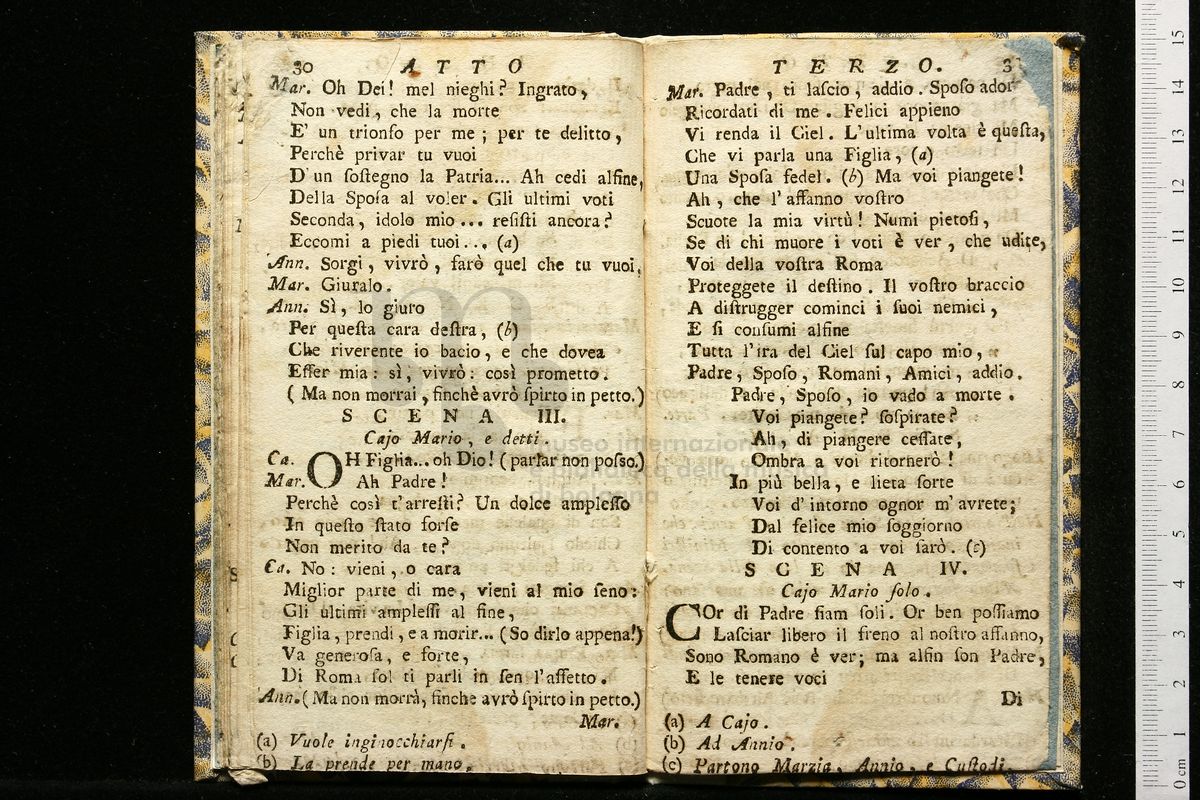 30 ATTO
Mar. Oh Dei! mel nieghi? Ingrato,
Non vedi, che la morte
E' un trionfo per me; per te delitto,
Perchè privar tu vuoi
D'un ſoſtegno la Patria... Ah cedi alfine,
Della Spoſa al voler. Gli ultimi voti
Seconda, idolo mio... reſiſti ancora?
Eccomi a piedi tuoi... (a)
Ann. Sorgi, vivrò, farò quel che tu vuoi.
Mar. Giuralo.
Ann. Sì, lo giuro
Per queſta cara deſtra, (b)
Che riverente io bacio, e che dovea
Eſſer mia: sì, vivrò: così prometto.
(Ma non morrai, finchè avrò ſpirto in petto.)
SCENA III.
Cajo Mario, e detti.
Ca. OH Figlia... oh Dio! (parlar non poſſo.)
Mar. Ah Padre!
Perchè così t'arreſti? Un dolce ampleſſo
In queſto ſtato forſe
Non merito da te?
Ca. No: vieni, o cara
Miglior parte di me, vieni al mio ſeno:
Gli ultimi ampleſſi al fine,
Figlia, prendi, e a morir... (So dirlo appena!)
Va generoſa, e forte,
Di Roma ſol ti parli in ſen l'affetto.
Ann. (Ma non morrà, finche avrò ſpirto in petto.)
Mar.
(a) Vuole inginocchiarſi.
(b) La prende per mano.
TERZO. 3
Mar. Padre, ti laſcio, addio. Spoſo ador
Ricordati di me. Felici appieno
Vi renda il Ciel. L'ultima volta è queſta,
Che vi parla una Figlia, (a)
Una Spoſa fedel. (b) Ma voi piangete!
Ah, che l'affanno voſtro
Scuote la mia virtù! Numi pietoſi,
Se di chi muore i voti è ver, che udite,
Voi della voſtra Roma
Proteggete il deſtino. Il voſtro braccio
A diſtrugger cominci i ſuoi nemici,
E ſi conſumi alfine
Tutta l'ira del Ciel ſul capo mio,
Padre, Spoſo, Romani, Amici, addio.
Padre, Spoſo, io vado a morte.
Voi piangete? ſoſpirate?
Ah, di piangere ceſſate,
Ombra a voi ritornerò!
In più bella, e lieta ſorte
Voi d'intorno ognor m'avrete;
Dal felice mio ſoggiorno
Di contento a voi ſarò. (c)
SCENA IV.
Cajo Mario ſolo.
COr di Padre ſiam ſoli. Or ben poſſiamo
Laſciar libero il freno al noſtro affanno,
Sono Romano è ver; ma alfin ſon Padre,
E le tenere voci
Di
(a) A Cajo.
(b) Ad Annio.
(c) Partono Marzia, Annio, e Cuſtodi.
museo internazionale
e biblioteca della musica
di bologna
0 cm 1 2 3 4 5 6 7 8 9 10 11 12 13 14 15